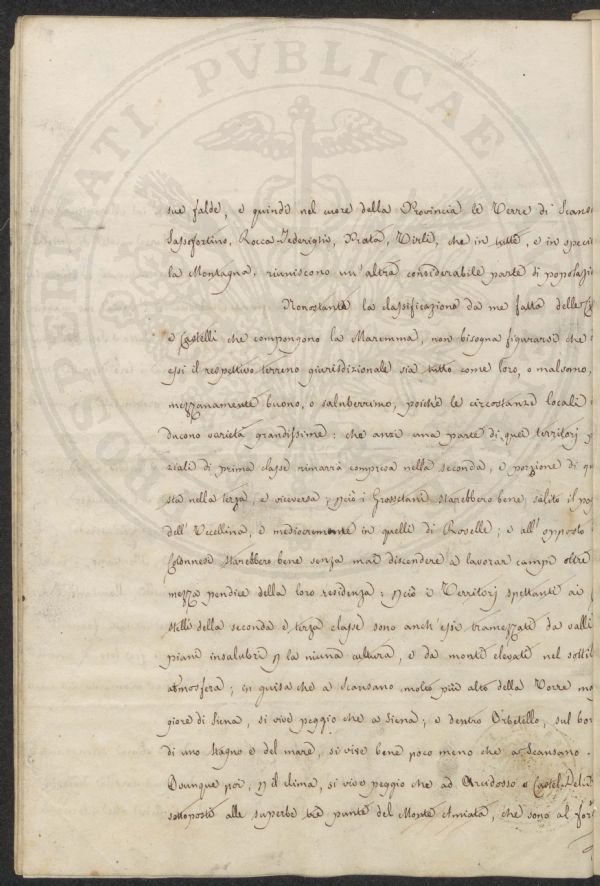 PROSPERITATI PVBLICAE
sue falde, e quindi nel cuore della Provincia le Terre di Scans
Sassofortino, Rocca Federighi, Prata, Tirli, che in tutte, e in speci
la Montagna, riuniscono un' altra considerabile parte di popolazio
Nonostante la classificazione da me fatta delle
e Castelli che compongono la Maremma, non bisogna figurarsi che
essi il respettivo terreno giurisdizionale sia tutto come loro, o malsano,
mezzanamente buono, o saluberrimo; poiché le circostanze locali
ducono varietà grandissime: che anzi una parte di quei territorj
ziali di prima classe rimarrà compresa nella seconda, e porzione di qu
sta nella terza, e viceversa; però i Grossetani starebbero bene, salito il pog
dell' Uccellina, e mediocremente in quelli di Roselle; e all' opposto
Colonnesi starebbero bene senza mai discendere a lavorar campi oltre
mezza pendice della loro residenza; però i Territorj spettanti ai
stelli della seconda e terza classe sono anch' essi tramezzati da valli
piani insalubri p la niuna cultura, e da monti elevati nel sottil
atmosfera; in guisa che a Scansano molto più alto della Torre mag
giore di Siena, si vive peggio che a Siena; e dentro Orbetello, sul bor
di uno stagno e del mare, si vive bene poco meno che a Scansano.
Dounque poi, p il clima, si vive peggio che ad Arcidosso e Castel del
sottoposti alle superbe tre punte del Monte Amiata, che sono al for